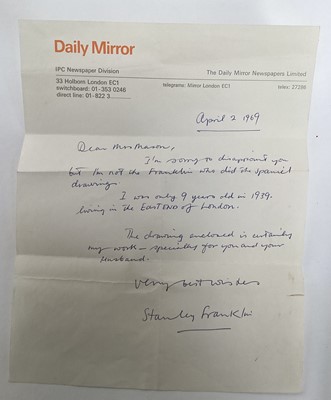 Daily Mirror
IPC Newspaper Division
The Daily Mirror Newspapers Limited
33 Holborn London EC1
switchboard: 01-353 0246
direct line: 01-822 3
telegrams: Mirror London EC1
telex: 27286
April 2 1969
Dear Mrs Mason,
I'm sorry to disappoint you
but I'm not the Franklin who did the spaniel
drawings.
I was only 9 years old in 1939.
living in the EAST END of London.
The drawing enclosed is certainly
my work - specially for you and your
husband.
very best wishes
Stanley Franklin